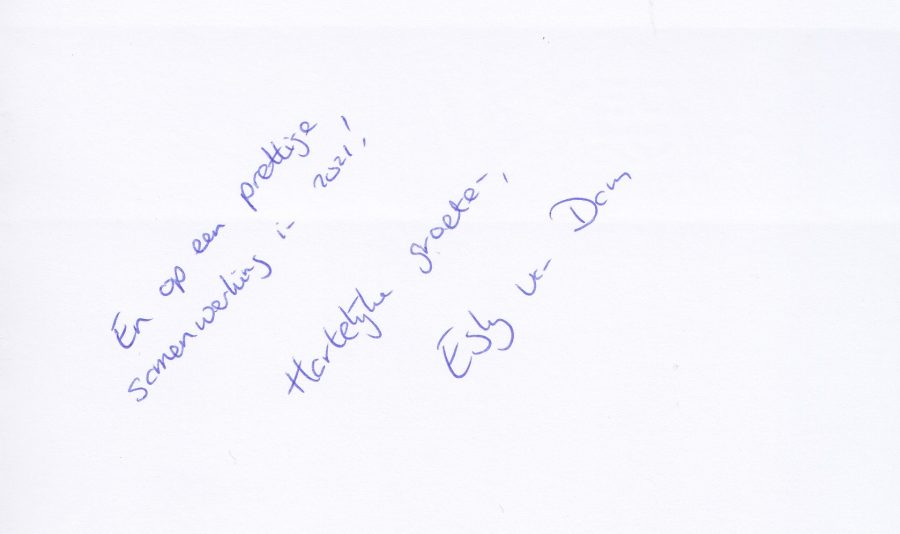 En op een prettige
samenwerking in 2021!
Hartelijke groeten,
van Dam